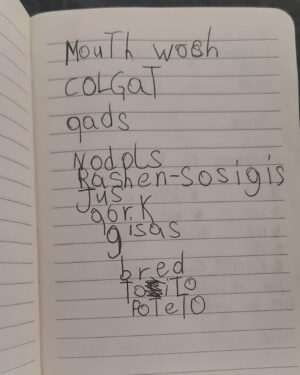 Mouth wosh
COLGaT
qads
Nodpls
Rashen-sosigis
Jus
qorK
gisas
bred
ToiTO
PoTeTO